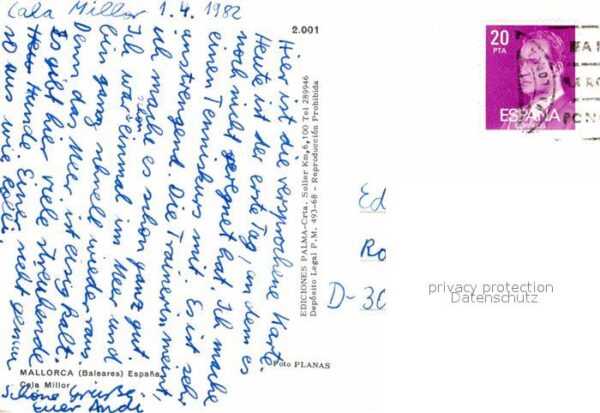 Cala Millor 1.4.1982
Hier ist die versprochene Karte.
Heute ist der erste Tag, an dem es
noch nicht geregnet hat. Ich mache
einen Tenniskurs mit. Es ist sehr
anstrengend. Die Trainerin meint,
ich mache es schon ganz gut.
Ich war schon einmal im Meer und
bin ganz schnell wieder raus.
Denn das Meer ist eisig kalt.
Es gibt hier viele streunende
Hunde. Einer sieht genau
so aus wie
Schöne Grüße,
Euer Andi
2.001
EDICIONES PALMA-Crta. Soller Km, 6,100 Tel 289946
Depósito Legal P.M. 493-68 - Reproducción Prohibida
Foto PLANAS
MALLORCA (Baleares) España
Cala Millor
20
PTA
ESPAÑA
CORREOS
Ed
Ro
D-30
privacy protection
Datenschutz